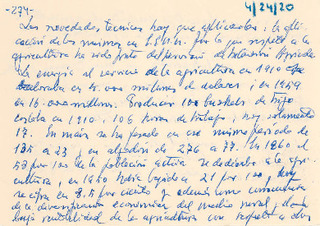 -274-
4/24/20
Las novedades técnicas hay que aplicarlas: la apli-
cación de las mismas en EE.UU. por lo que respecta a la
agricultura ha sido
La energía al servicio de la agricultura en 1910 se
valoraba en 5.000 millones de dolares; en 1959
en 16.000 millones. Producir 100 bushels de trigo
costaba en 1910: 106 horas de trabajo; hoy solamente
17. En maíz se ha pasado en ese mismo período de
135 a 23; en algodón de 276 a 77. En 1860 el
58 por 100 de la población activa se dedicaba a la agri-
cultura, en 1950 había bajado a 21 por 100, hoy
se cifra en 8.5 por ciento y además como consecuencia
de la diversificación económica del medio rural, donde
baja rentabilidad de la agricultura con respecto a otros